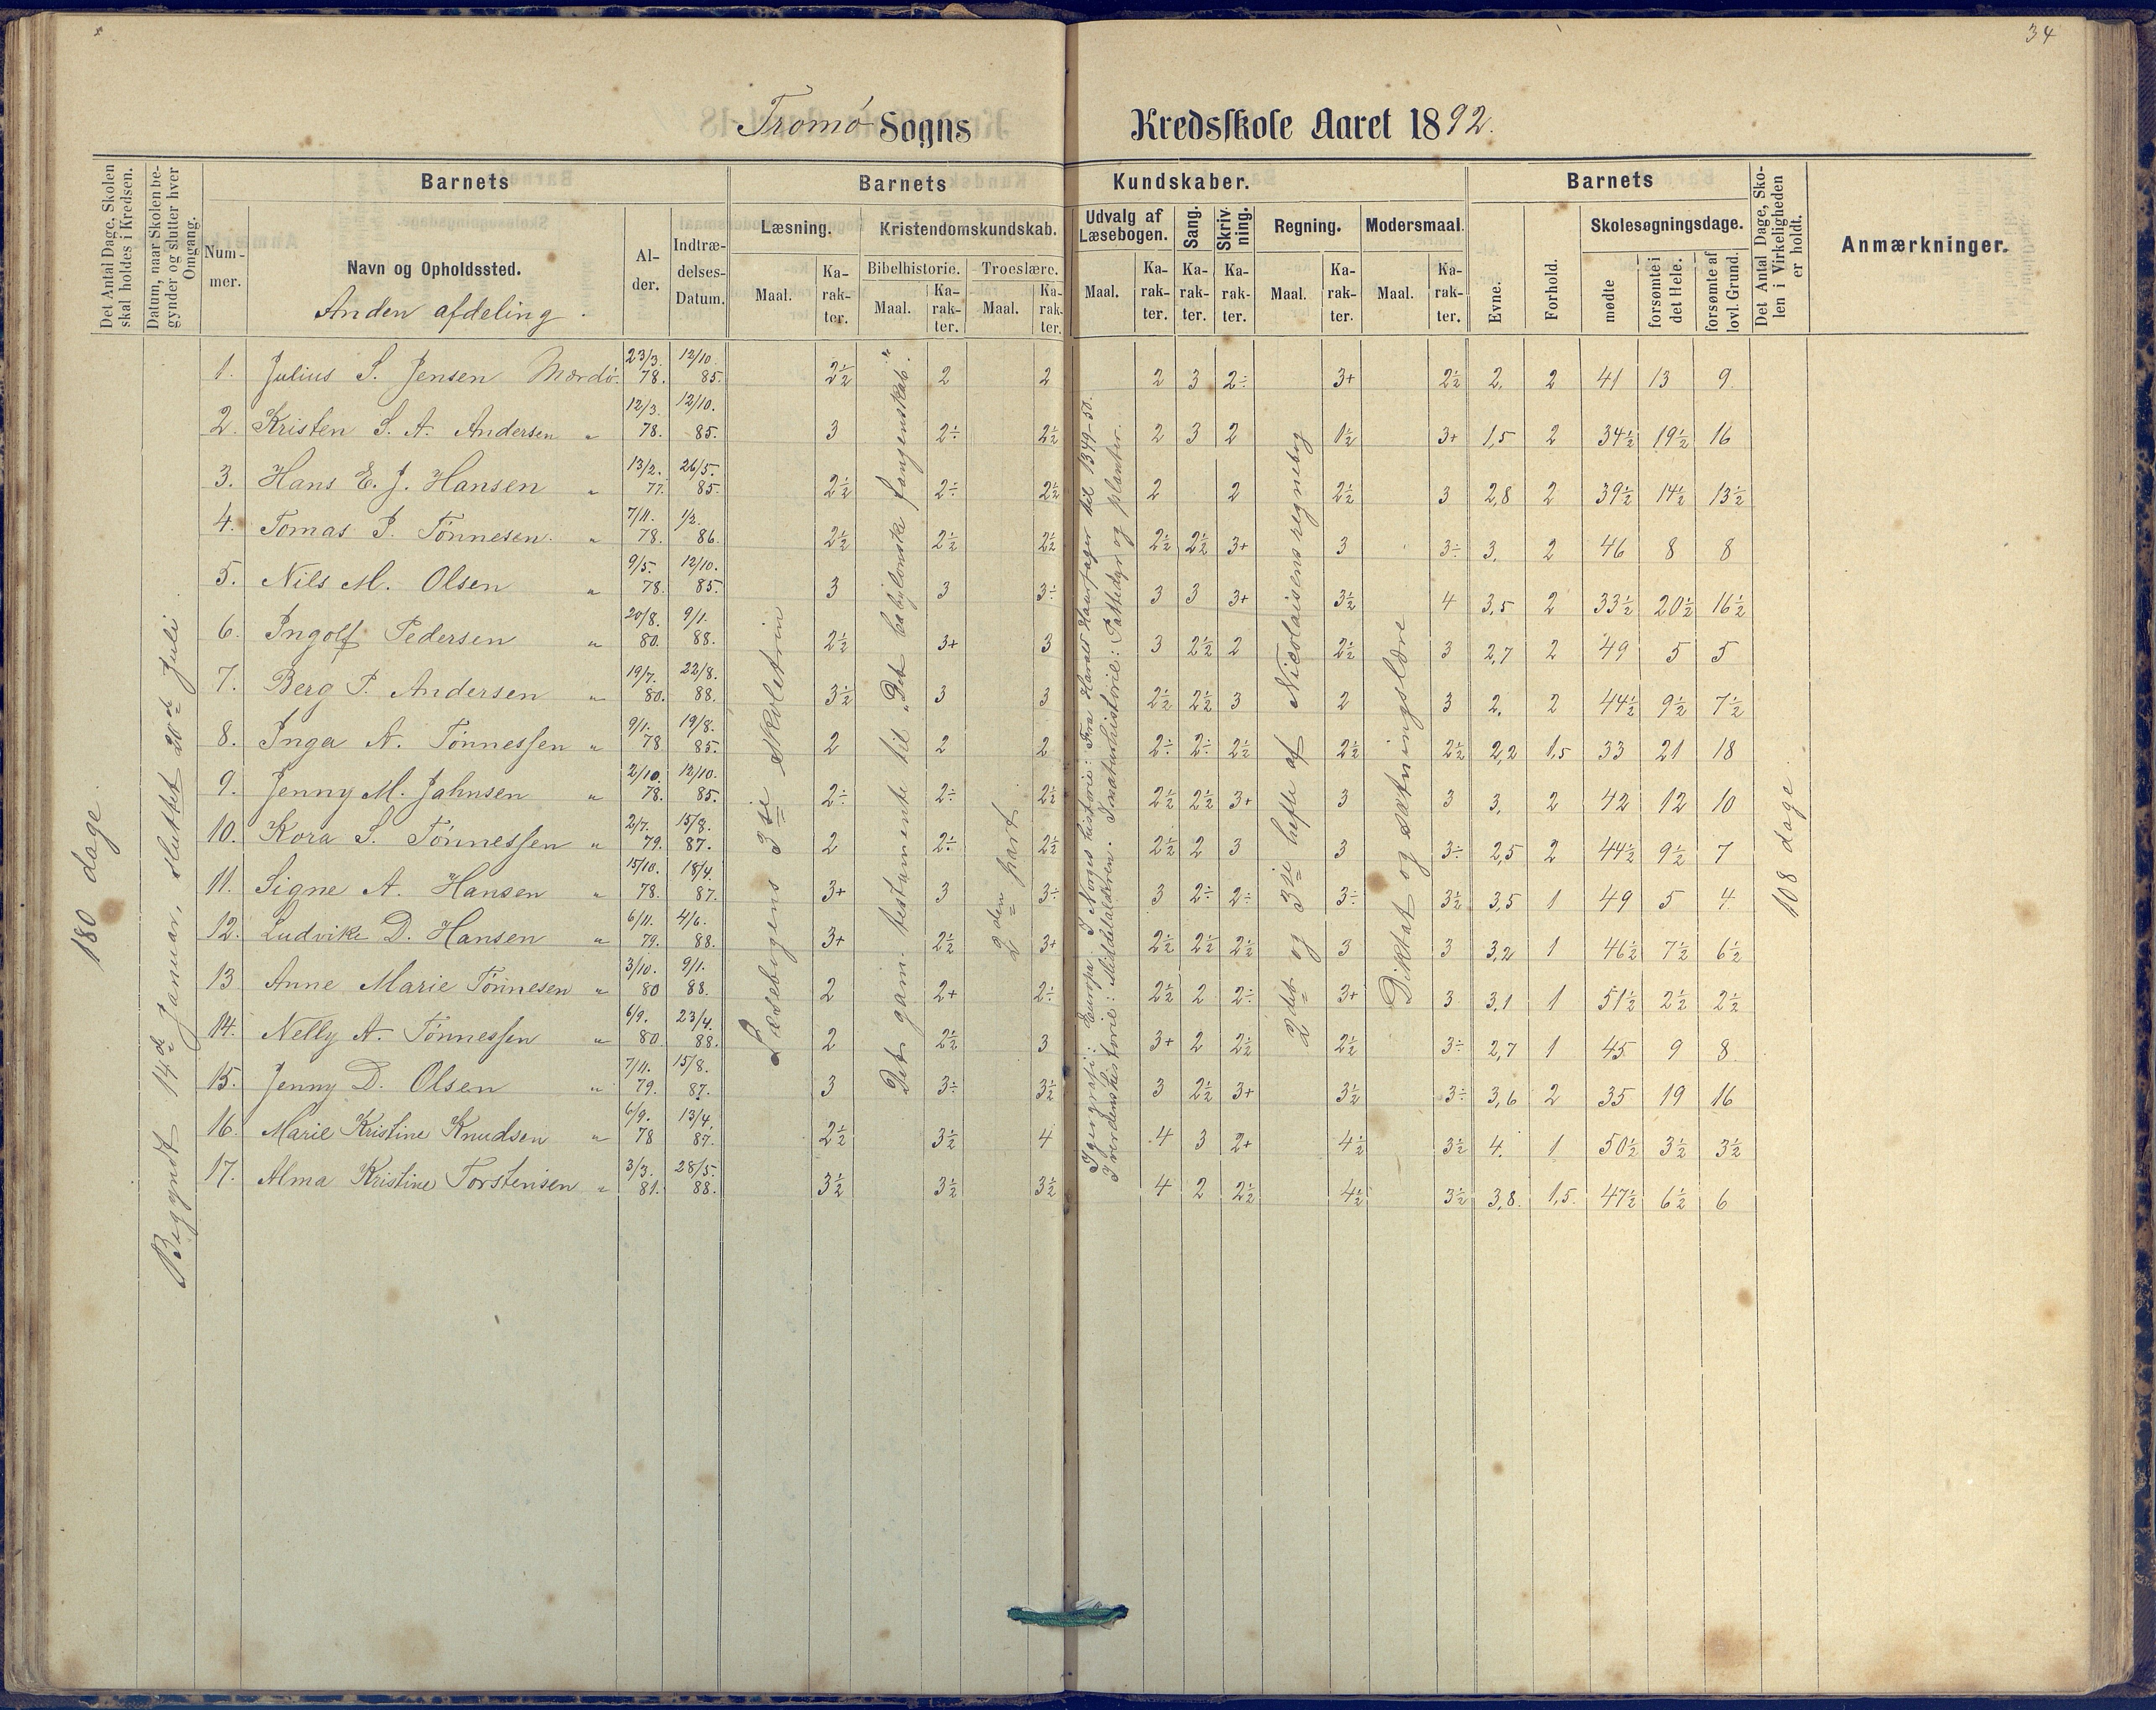 34
Tromø Sogns Kredsskole Aaret 1892.
Det Antal Dage, Skolen skal holdes i Kredsen.
Datum, naar Skolen begynder og slutter hver Omgang.
Barnets
Nummer.
Navn og Opholdssted.
Anden afdeling.
Alder.
Indtrædelses-Datum.
Barnets Kundskaber.
Læsning.
Maal.
Karakter.
Kristendomskundskab.
Bibelhistorie.
Maal.
Karakter.
Troeslære.
Maal.
Karakter.
Udvalg af Læsebogen.
Maal.
Karakter.
Sang.
Karakter.
Skrivning.
Karakter.
Regning.
Maal.
Karakter.
Modersmaal.
Maal.
Karakter.
Barnets
Evne.
Forhold.
Skolesøgningsdage.
mødte
forsømte i det Hele.
forsømte af lovl. Grund.
Det Antal Dage, Skolen i Virkeligheden er holdt.
Anmærkninger.
180 dage.
Begyndt 14de Januar, sluttet 20de Juli.
Læsebogens 3die skoletrin
Det gam. testamente til „Det babylonske fangenskab."
2den part.
I geografi: Europa. I Norges historie: Fra Harald Haarfager til 1349-50.
I verdenshistorie: Middelalderen. I naturhistorie: Pattedyr og planter.
2det og 3die hefte af Nicolaisens regnebog
Diktat og sætningslære
108 dage.
1. Julius S. Jensen Mærdø. 23/3. 78. 12/10. 85. 2½ 2 2 2 3 2÷ 3+ 2½ 2, 2 41 13 9.
2. Kristen S. A. Andersen " 12/3. 78. 12/10. 85. 3 2÷ 2½ 2 3 2 1½ 3+ 1,5 2 34½ 19½ 16
3. Hans E. J. Hansen " 13/2. 77. 26/5. 85. 2½ 2÷ 2½ 2 2 2½ 3 2,8 2 39½ 14½ 13½
4. Tomas P. Tønnesen. " 7/11. 78. 1/2. 86. 2½ 2½ 2½ 2½ 2½ 3+ 3 3÷ 3, 2 46 8 8
5. Nils M. Olsen " 9/5. 78. 12/10. 85. 3 3 3÷ 3 3 3+ 3½ 4 3,5 2 33½ 20½ 16½
6. Ingolf Pedersen " 20/8. 80. 9/1. 88. 2½ 3+ 3 3 2½ 2 2½ 3 2,7 2 49 5 5
7. Berg P. Andersen " 19/7. 80. 22/8. 88. 3½ 3 3 2½ 2½ 3 2 3 2, 2 44½ 9½ 7½
8. Inga N. Tønnessen " 9/1. 78 19/8. 85. 2 2 2 2÷ 2÷ 2½ 2½ 2½ 2,2 1,5 33 21 18
9. Jenny M. Jahnsen " 2/10. 78. 12/10. 85. 2÷ 2÷ 2½ 2½ 2½ 3+ 3 3 3, 2 42 12 10
10. Kora S. Tønnessen " 2/7. 79. 15/8. 87. 2 2÷ 2½ 2½ 2 3 3 3÷ 2,5 2 44½ 9½ 7
11. Signe A. Hansen " 15/10. 78. 18/4. 87. 3+ 3 3÷ 3 2÷ 2÷ 3÷ 3½ 3,5 1 49 5 4
12. Ludvike D. Hansen " 6/11. 79. 4/6. 88. 3+ 2½ 3+ 2½ 2½ 2½ 3 3 3,2 1 46½ 7½ 6½
13 Anne Marie Tønnesen " 3/10. 80 9/1. 88. 2 2+ 2÷ 2½ 2 2÷ 3+ 3 3,1 1 51½ 2½ 2½
14. Nelly A. Tønnessen " 6/9. 80. 23/4. 88. 2 2½ 3 3+ 2 2½ 2½ 3÷ 2,7 1 45 9 8
15. Jenny D. Olsen " 7/11. 79. 15/8. 87. 3 3÷ 3½ 3 2½ 3+ 3½ 3÷ 3,6 2 35 19 16
16. Marie Kristine Knudsen " 6/9. 78 13/4. 87. 2½ 3½ 4 4 3 2+ 4½ 3½ 4. 1 50½ 3½ 3½
17. Alma Kristine Torstensen " 3/3. 81. 28/5. 88. 3½ 3½ 3½ 4 2 2½ 4½ 3½ 3,8. 1,5. 47½ 6½ 6